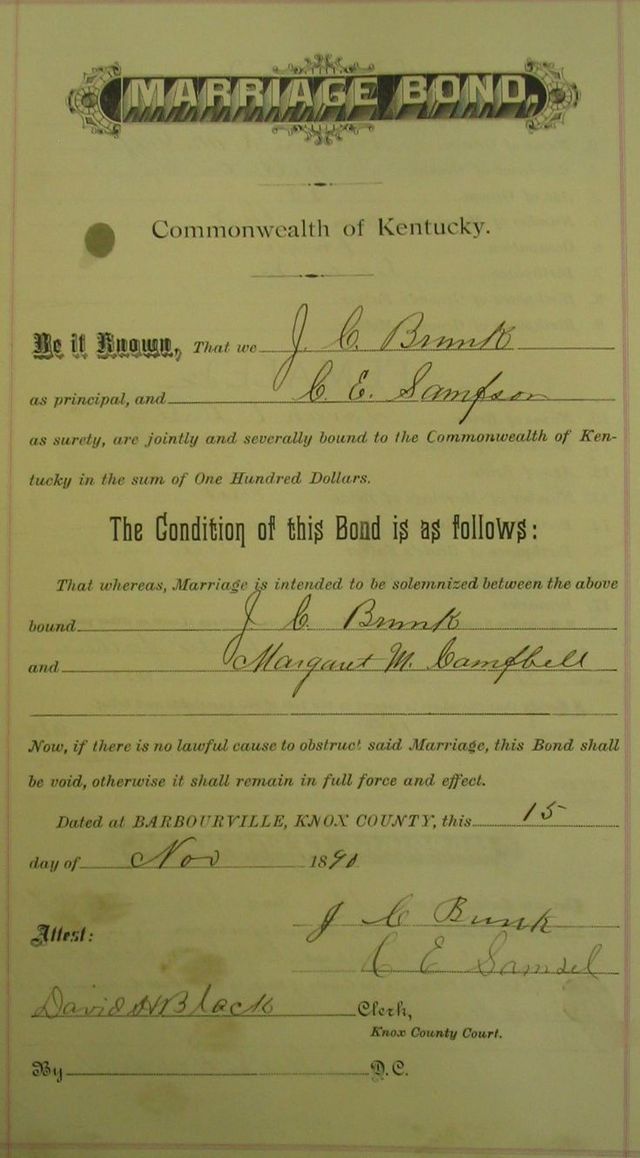 MARRIAGE BOND,
Commonwealth of Kentucky.
Be it Known, That we J. C. Brunk
as principal, and C. E. Sampson
as surety, are jointly and severally bound to the Commonwealth of Ken-
tucky in the sum of One Hundred Dollars.
The Condition of this Bond is as follows:
That whereas, Marriage is intended to be solemnized between the above
bound J. C. Brunk
and Margaret M. Campbell
Now, if there is no lawful cause to obstruct said Marriage, this Bond shall
be void, otherwise it shall remain in full force and effect.
Dated at BARBOURVILLE, KNOX COUNTY, this 15
day of Nov 1890
Attest:
J C Bunk
C E Samsel
David H Black Clerk,
Knox County Court.
By D.C.